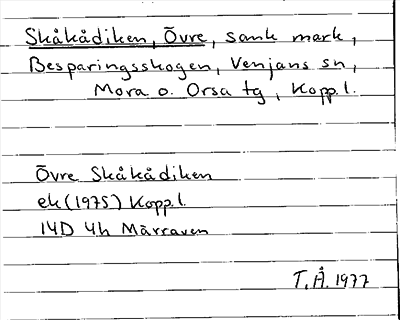 Skåkådiken, Övre, sank mark,
Besparingsskogen, Venjans sn,
Mora o. Orsa tg, Kopp.l.
Övre Skåkådiken
ek (1975) Kopp.l.
14D 4h Märraven
T.Å. 1977